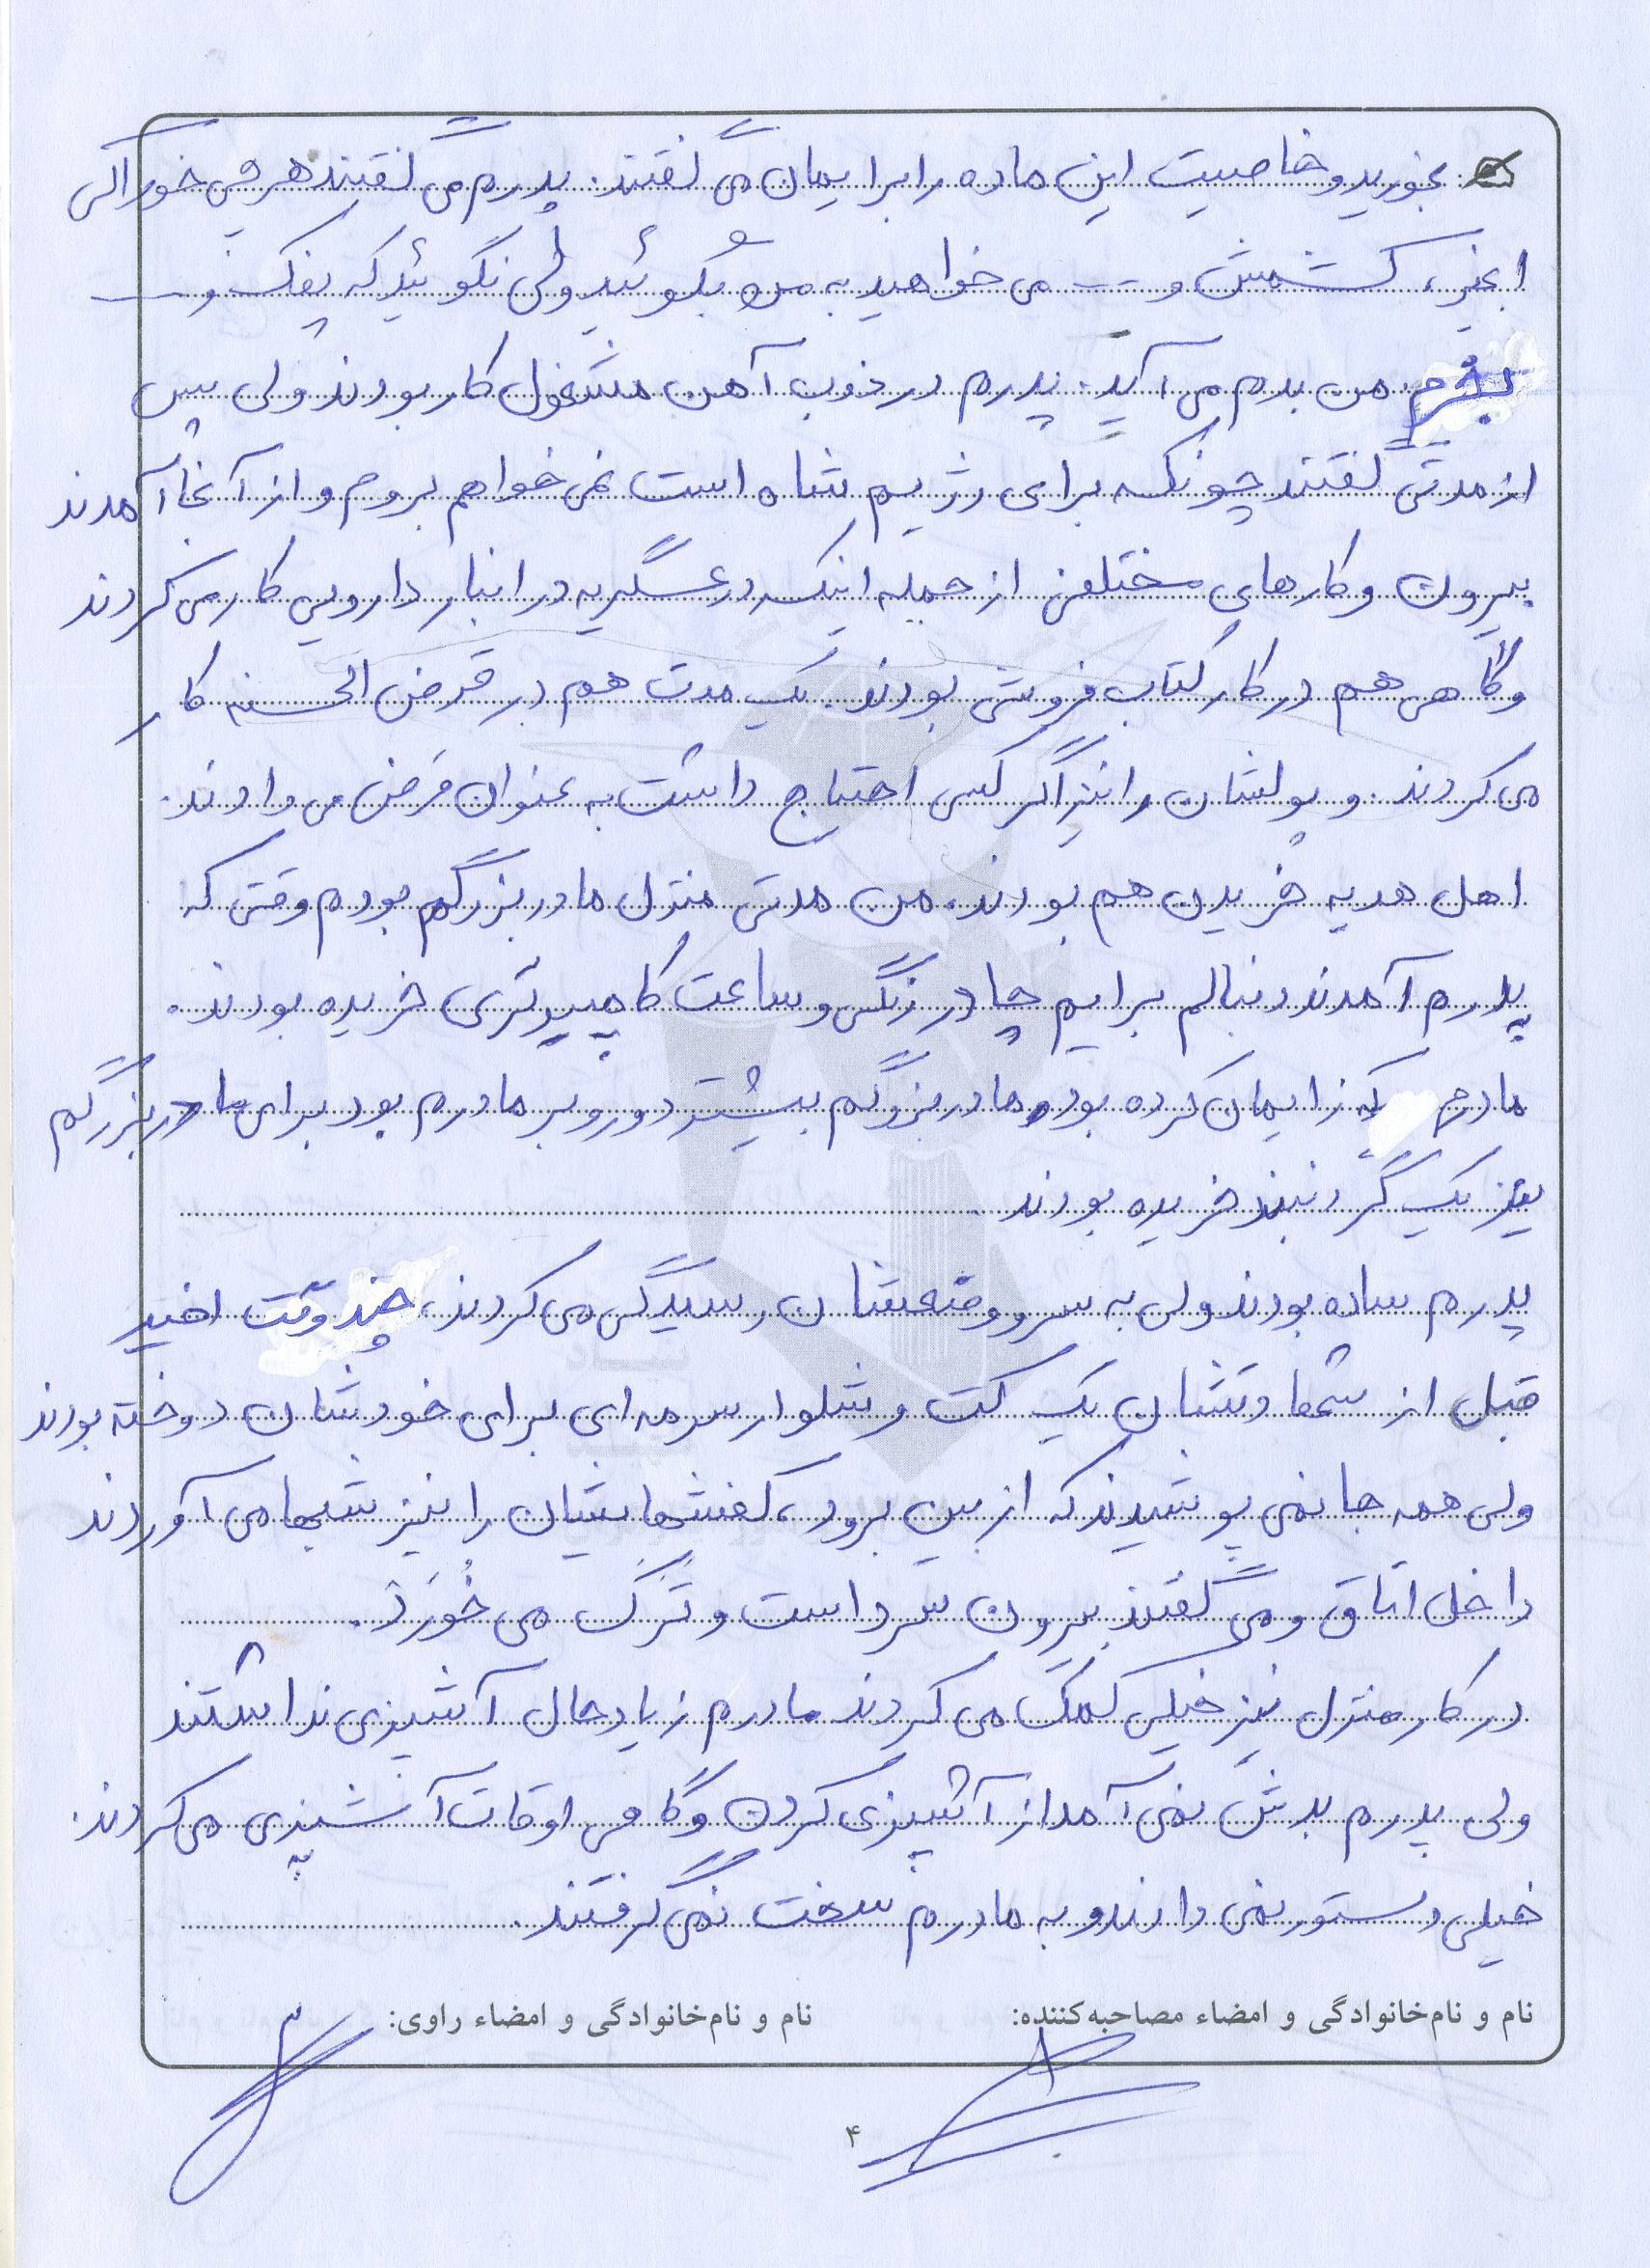 بخورید و خاصیت این ماده را برایمان می گفتند. پدرم می گفتند هر چی خوراکی
انجیر، کشمش و ... می خواهید به من بگوئید ولی نگوئید که پفک و ...
بخرم. من بدم می آید. پدرم در ذوب آهن مشغول کار بودند ولی پس
از مدتی گفتند چونکه برای رژیم شاه است نمی خواهم بروم و از آنجا آمدند
بیرون و کارهای مختلفی از جمله اینکه در عسگریه در انبار دارویی کار می کردند
و گاهی هم در کار کتاب فروشی بودند. یک مدت هم در قرض الحسنه کار
می کردند. و پولشان را نیز اگر کسی احتیاج داشت به عنوان قرض می دادند.
اهل هدیه خریدن هم بودند. من مدتی منزل مادربزرگم بودم وقتی که
پدرم آمدند دنبالم برایم چادر رنگی و ساعت کامپیوتری خریده بودند.
مادرم که زایمان کرده بود مادربزرگم بیشتر دور و بر مادرم بود برای مادربزرگم
نیز یک گردنبند خریده بودند.
پدرم ساده بودند ولی به سر و وضعشان رسیدگی می کردند، چند وقت اخیر
قبل از شهادتشان یک کت و شلوار سرمه ای برای خودشان دوخته بودند
ولی همه جا نمی پوشیدند که از بین برود، کفشهایشان را نیز شبها می آوردند
داخل اتاق و می گفتند بیرون سرد است و تَرَک می خُورَد.
در کار منزل نیز خیلی کمک می کردند مادرم زیاد حال آشپزی نداشتند
ولی پدرم بدش نمی آمد از آشپزی کردن و گاهی اوقات آشپزی می کردند.
خیلی دستور نمی دادند و به مادرم سخت نمی گرفتند.
نام و نام‌خانوادگی و امضاء مصاحبه‌کننده: نام و نام‌خانوادگی و امضاء راوی:
۴